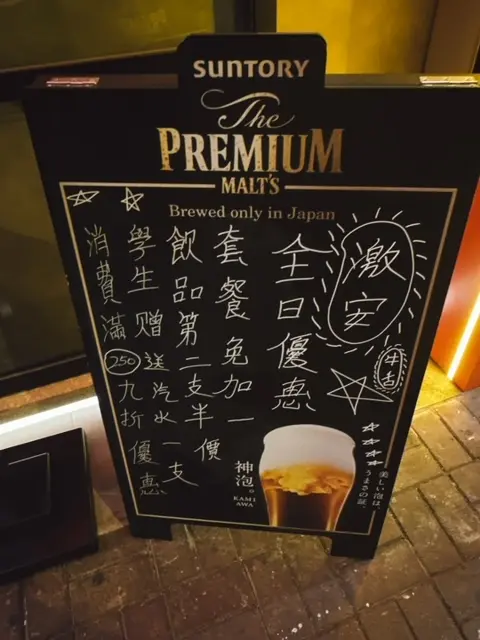 SUNTORY
The
PREMIUM
MALT'S
Brewed only in Japan
激安
牛舌
全日優惠
套餐免加一
飲品第二支半價
學生赠送汽水一支
消費滿250九折優惠
神泡。
KAMI
AWA
美しい泡は、
うまさの証